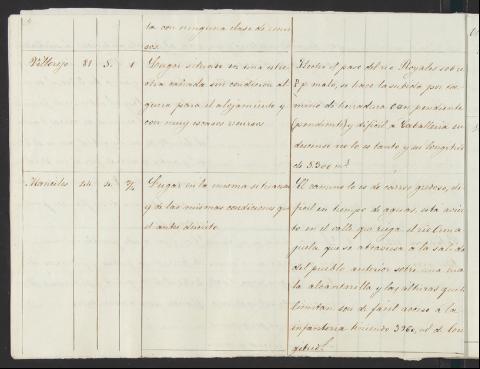 ta con ninguna clase de recur
sos.
Villorejo 81 3. 1
Lugar situado en una estre
cha cañada sin condicion al
guna para el alojamiento y
con muy escasos recursos
Hecho el paso del rio Royales sobre
p. malo, se hace la subida por ca
mino de herradura con pendiente
(pendiente) y dificil a Caballeria su
descenso no lo es tanto y su longitud
de 3.300 m.
Manciles 44 4. ½
Lugar en la misma situacion
y de las mismas condiciones que
el antes descrito.
El camino lo es de carros gredoso, di
ficil en tiempo de aguas, esta avier
to en el valle que riega el rio Urma
quela que se atraviesa a la salida
del pueblo anterior sobre una ma
la alcantarilla y las alturas que le
limitan son de facil acceso a la
infanteria teniendo 3960 m. de lon
gitud.